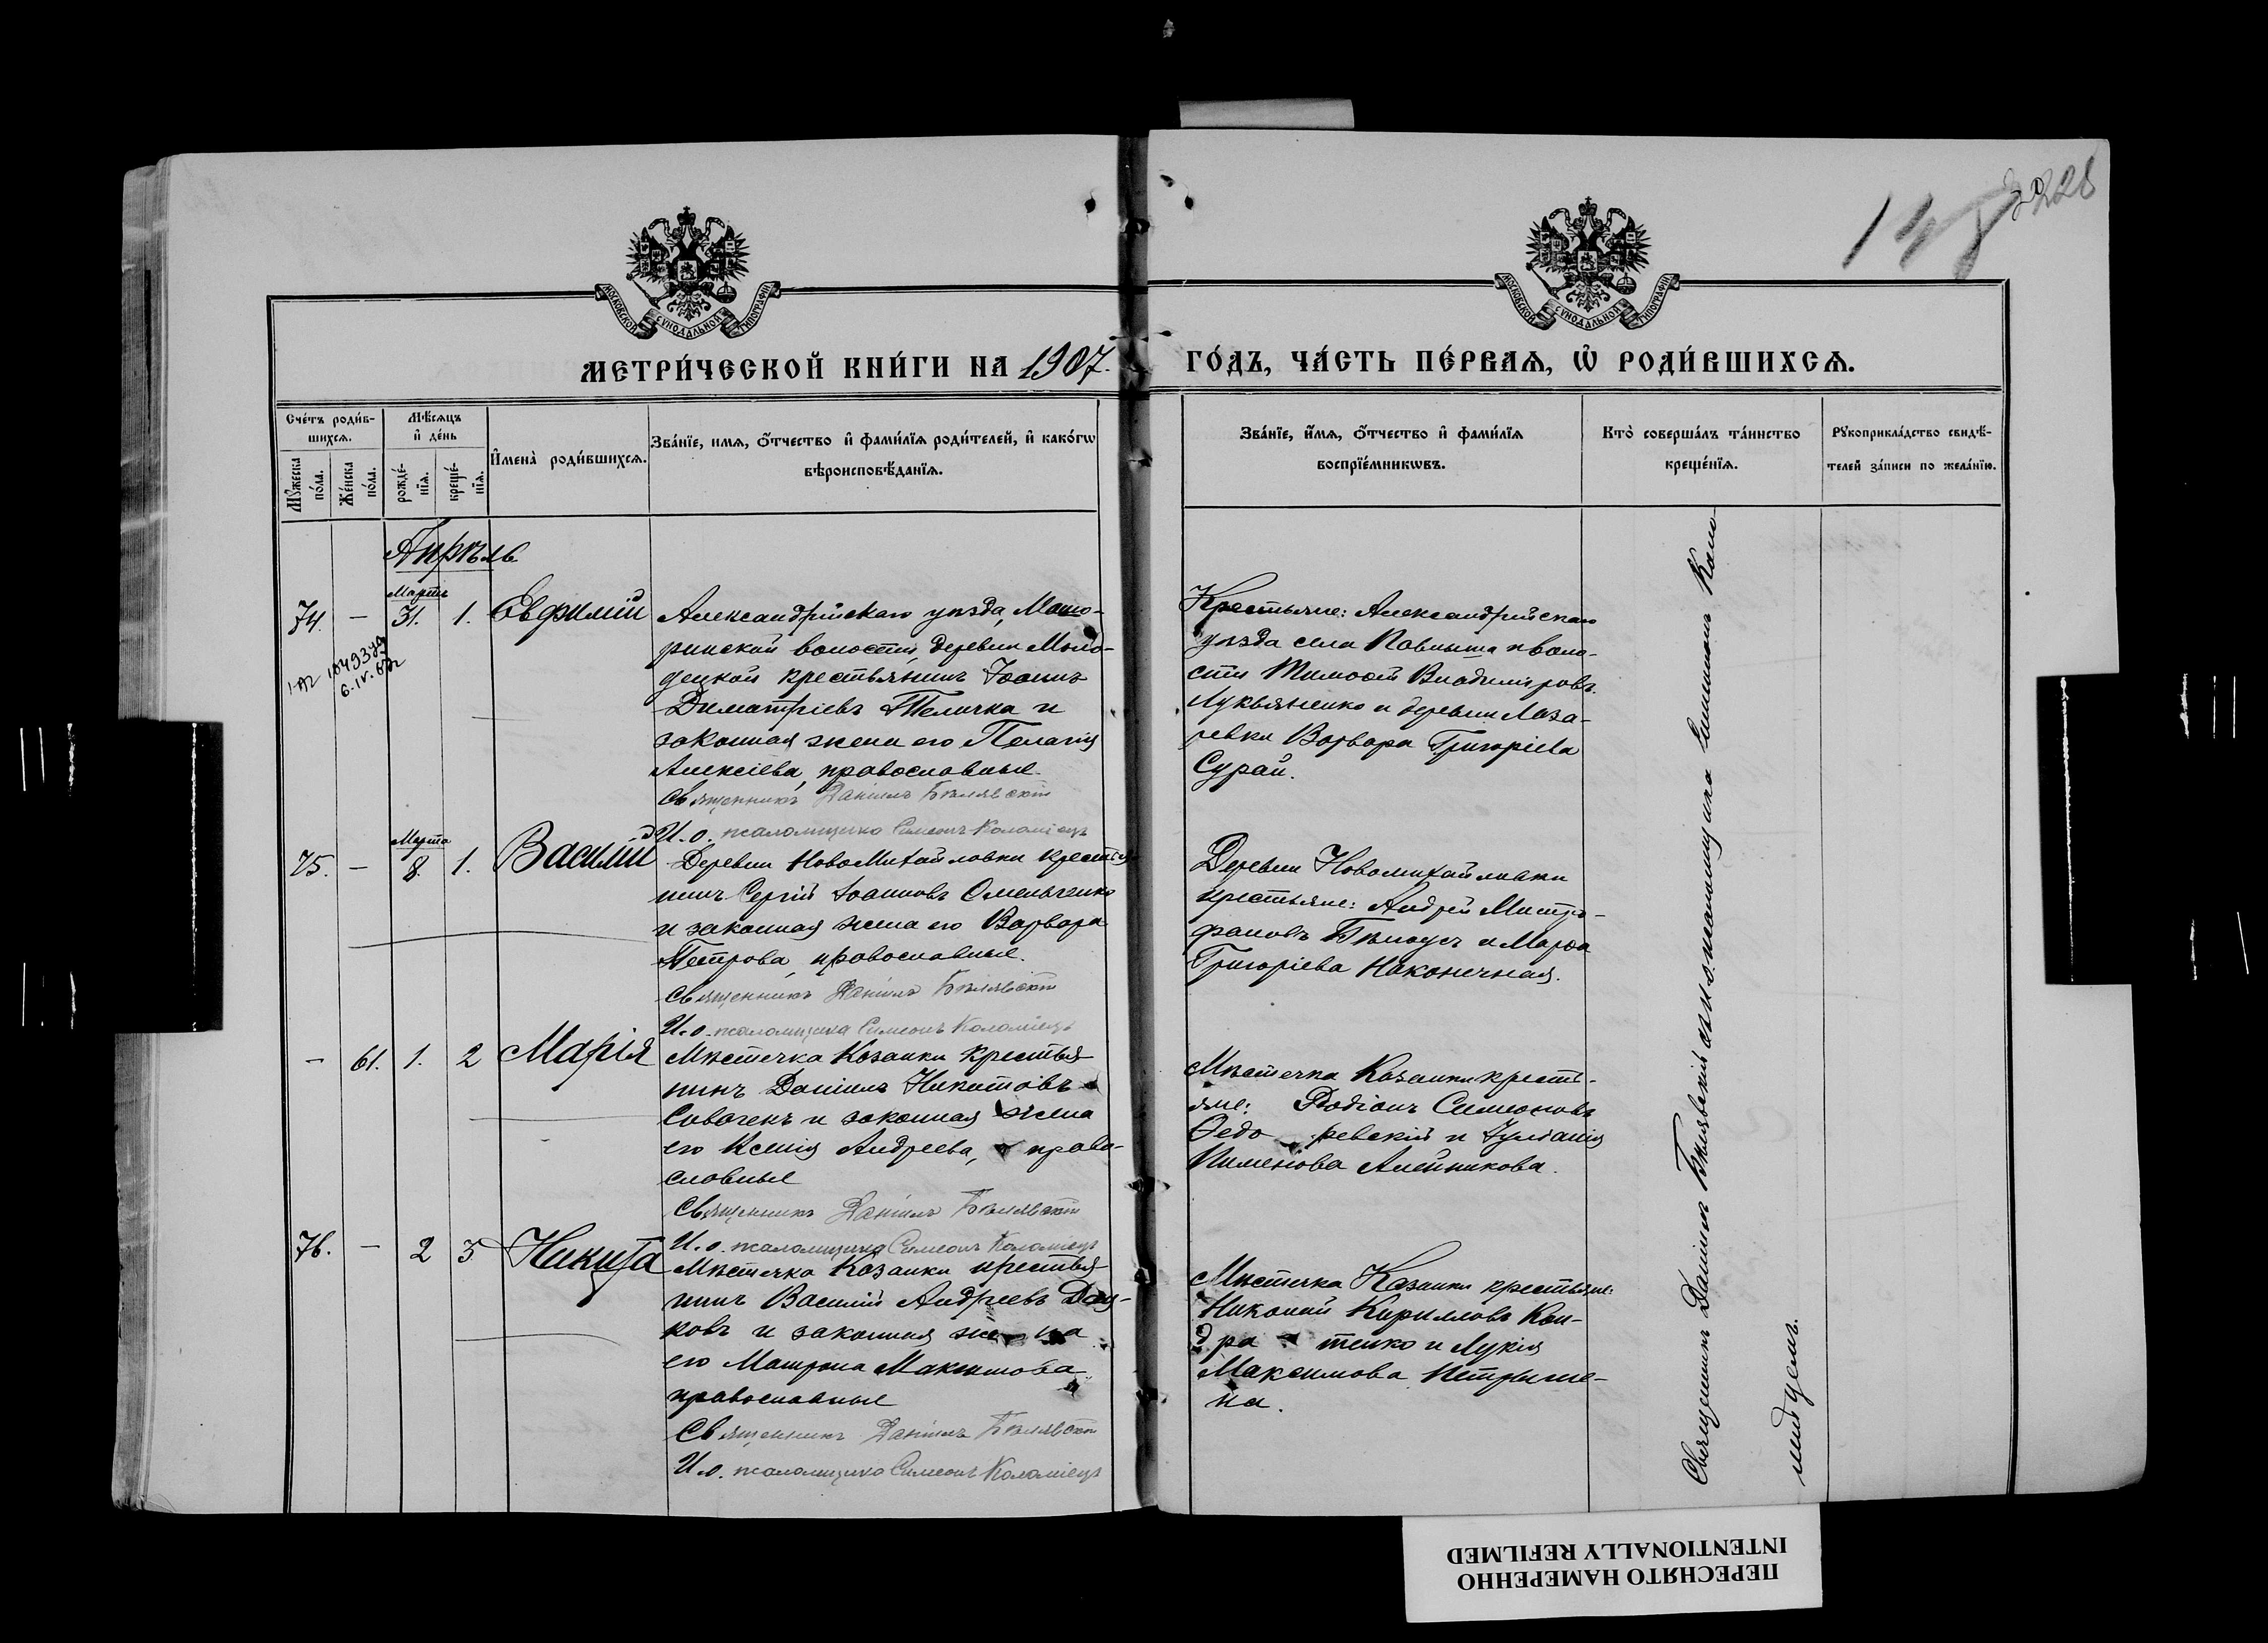 228
МОСКОВСКОЙ СУНОДАЛЬНОЙ ТИПОГРАФІИ
МОСКОВСКОЙ СУНОДАЛЬНОЙ ТИПОГРАФІИ
МЕТРИ́ЧЕСКОЙ КНИ́ГИ НА 1907.
ГО́ДЪ, ЧА́СТЬ ПЕ́РВАѦ, Ѽ РОДИ́ВШИХСѦ.
Сче́тъ роди́в-
шихсѧ.
Мꙋ́жеска по́ла.
Же́нска по́ла.
Мѣ́сѧцъ
и҆ де́нь
рожде́-
нїѧ.
креще́-
нїѧ.
И҆мена̀ роди́вшихсѧ.
Зва́нїе, имѧ, ѻ҆́тчество и҆ фами́лїѧ роди́телей, и҆ како́гѡ
вѣроисповѣ́данїѧ.
Зва́нїе, и҆́мѧ, ѻ҆́тчество и҆ фами́лїѧ
воспрїе́мникѡвъ.
Кто̀ соверша́лъ та́инство
креще́нїѧ.
Рꙋкоприкла́дство свидѣ́-
телей за́писи по жела́нїю.
Апрѣль
74. — Марта 31. 1. Евфимій
6.IV.
Александрійскаго уѣзда,
ринской волости, деревни Моло-
децкой крестьянинъ Іоаннъ
Димитріевъ Теличка и
законная жена его Пелагія
Алексіева, православные.
Священникъ Даніилъ Бѣлявскій
И. о. псаломщика Симеонъ Коломіецъ
Крестьяне: Александрійскаго
уѣзда села Павлыша и воло-
сти Тимофей Владиміровъ
Лукьяненко и деревни Лаза-
ревки Варвара Григоріева
Сурай.
75. — Марта 8. 1. Василій
Деревни НовоМихайловки крестья-
нинъ Сергій Іоанновъ Омельченко
и законная жена его Варвара
Петрова, православные.
Священникъ Даніилъ Бѣлявскій
И. о. псаломщика Симеонъ Коломіецъ
Деревни Новомихайловки
крестьяне: Андрей Митро-
фановъ Бѣлоусъ и Марѳа
Григоріева Наконечная.
— 61. 1. 2 Марія
Мѣстечка Козанки крестья-
нинъ Даніилъ Никитовъ
и законная жена
его Ксенія Андреева, право-
славные
Священникъ Даніилъ Бѣлявскій
И. о. псаломщика Симеонъ Коломіецъ
Мѣстечка Козанки кресть-
яне: Родіонъ Симеоновъ
Ѳедо ревскій и Іуліанія
Пименова Алейникова.
76. — 2 3 Никита
Мѣстечка Козанки крестья-
нинъ Василій Андреевъ
ковъ и законная жена
его Матрона Максимова
православные
Священникъ Даніилъ Бѣлявскій
И. о. псаломщика Симеонъ Коломіецъ
Мѣстечка Козанки крестьяне:
Николай Кирилловъ Кон-
дра тенко и Лукія
Максимова Петрыше-
на.
Священникъ Даніилъ Бѣлявскій съ и. о. псаломщика Симеономъ Коло-
мійцемъ.
ПЕРЕСНЯТО НАМЕРЕННО
INTENTIONALLY REFILMED